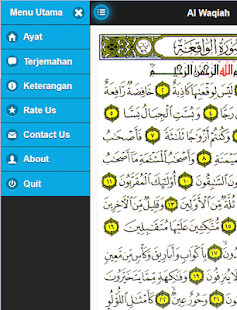 Menu Utama
Al Waqiah
Ayat
Terjemahan
Keterangan
Rate Us
Contact Us
About
Quit
سورة الواقعة
الله الرحمن الرحيم
لَيْسَ لِوَقْعَتِهَا كَاذِبَةٌ ٢ خَافِضَةٌ
رَجًّا ٤ وَبُسَّتِ الْجِبَالُ بَسًّا
وَكُنتُمْ أَزْوَاجًا ثَلَاثَةً ٧ فَأَصْحَابُ
٨ وَأَصْحَابُ الْمَشْأَمَةِ مَا أَصْحَابُ
السَّابِقُونَ ١٠ أُولَٰئِكَ الْمُقَرَّبُونَ
ثُلَّةٌ مِّنَ الْأَوَّلِينَ ١٣ وَقَلِيلٌ مِّنَ الْآخِرِينَ
١٥ مُّتَّكِئِينَ عَلَيْهَا مُتَقَابِلِينَ
١٧ بِأَكْوَابٍ وَأَبَارِيقَ وَكَأْسٍ مِّن
١٩ وَفَاكِهَةٍ مِّمَّا يَتَخَيَّرُونَ
٢١ وَحُورٌ عِينٌ ٢٢ كَأَمْثَالِ اللُّؤْلُؤِ